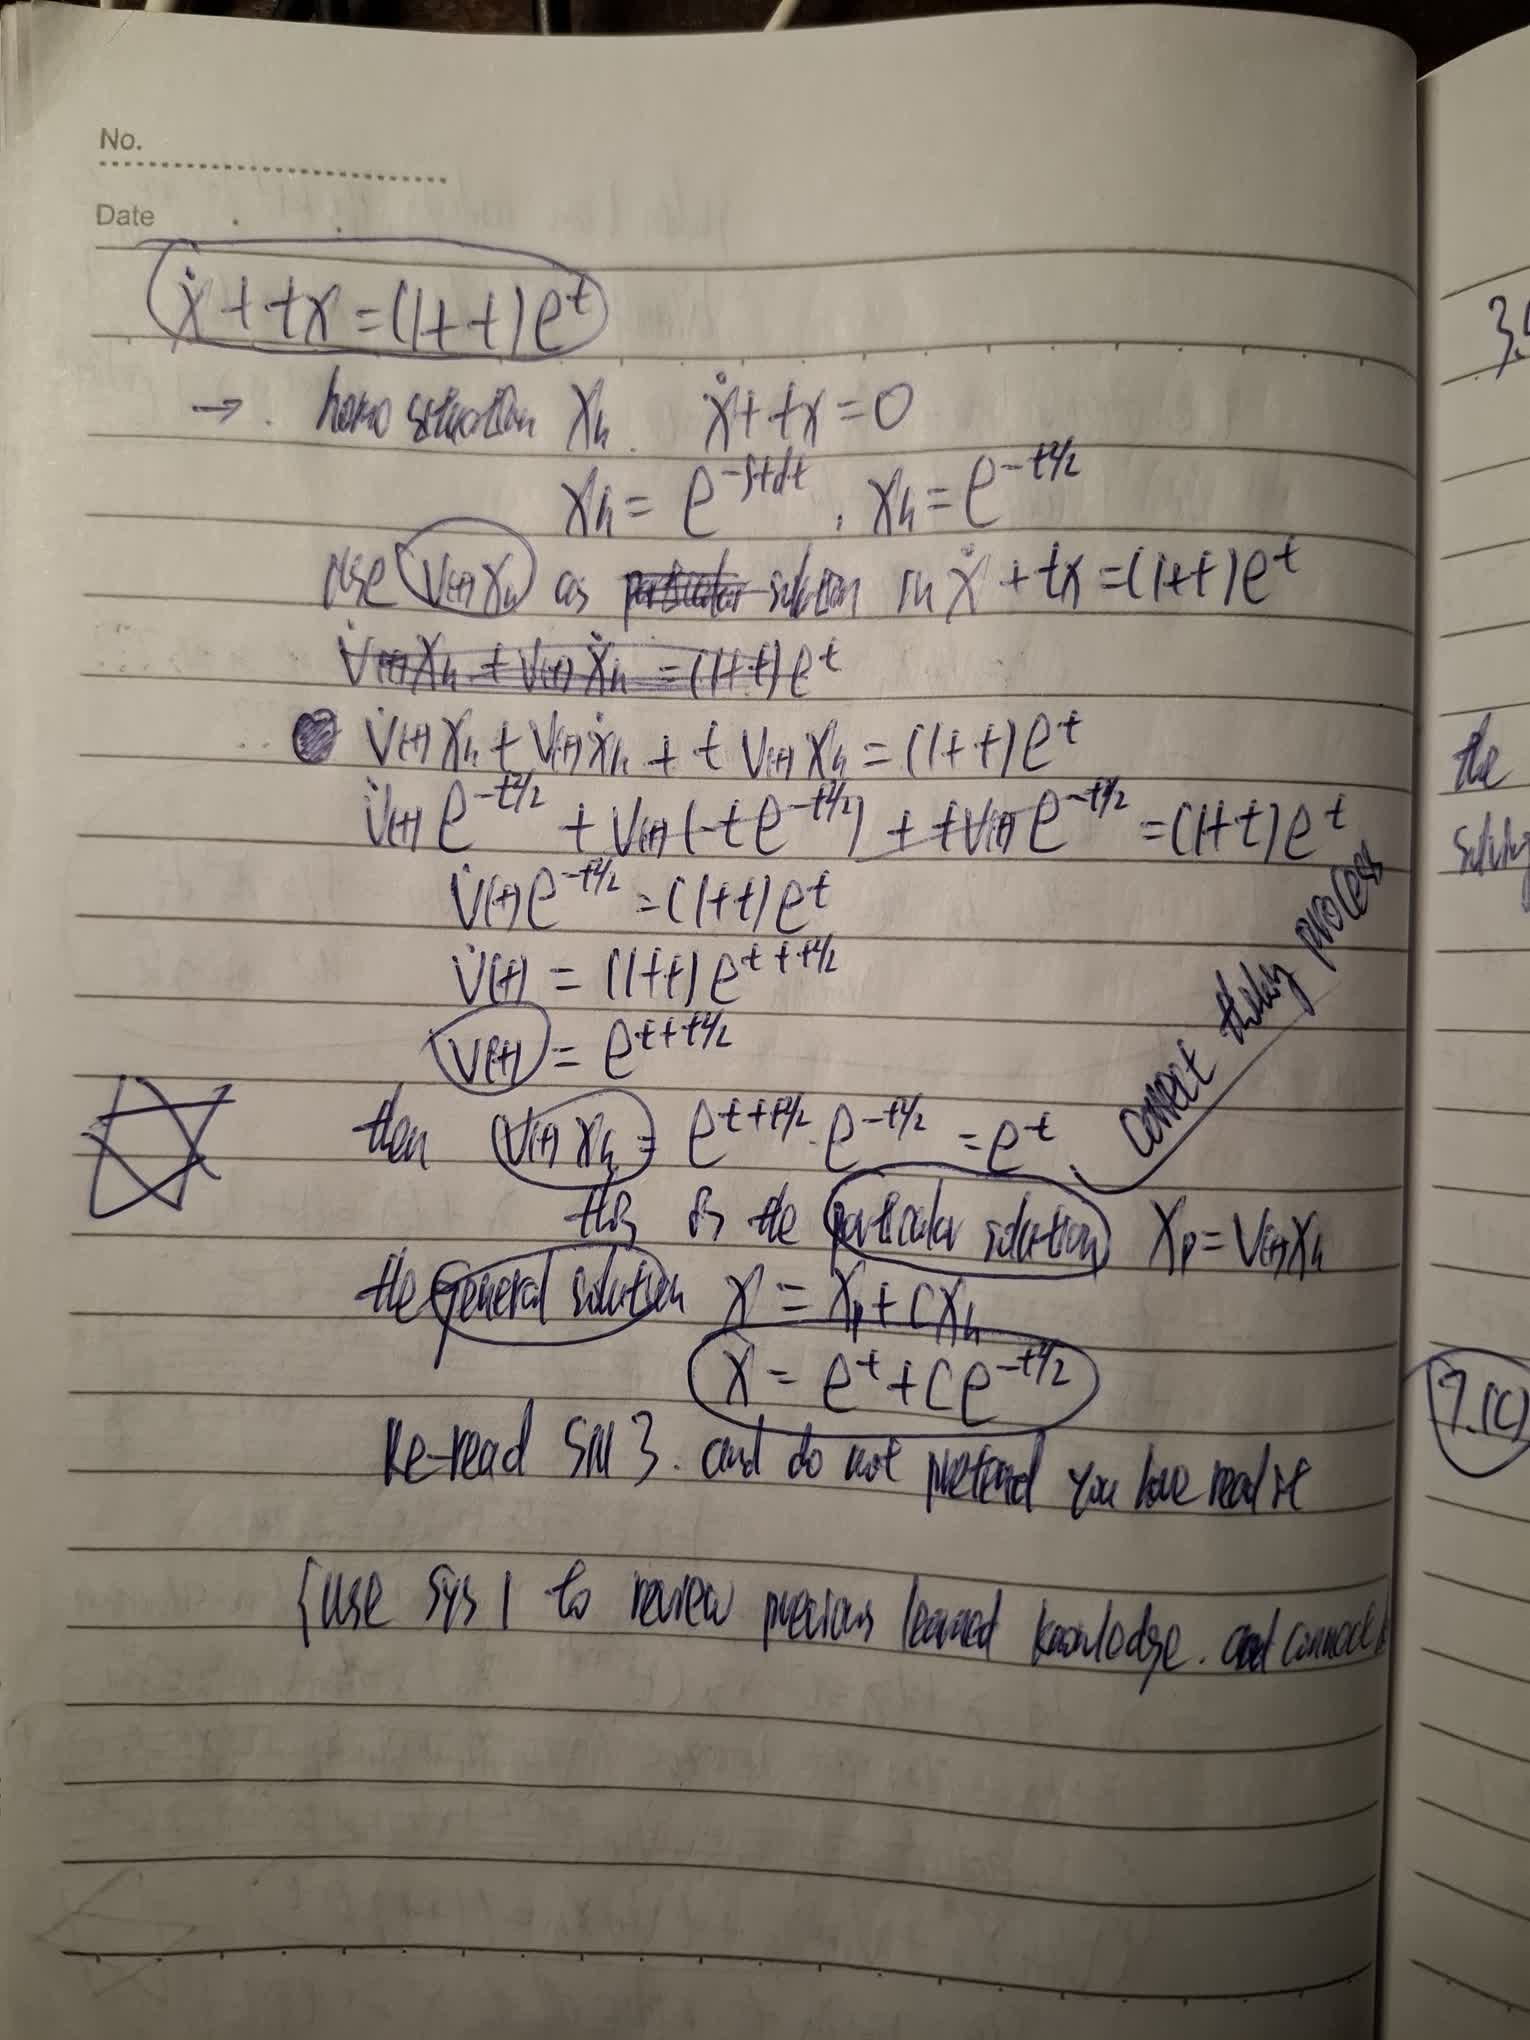 No.
Date
ẋ + tx = (1+t)e^t
→ . homo situation x_h . ẋ + tx = 0
x_h = e^{-∫tdt} , x_h = e^{-t²/2}
use v(t)x_h as particular solution in ẋ + tx = (1+t)e^t
v̇(t)x_h + v(t)ẋ_h = (1+t)e^t
v̇(t)x_h + v(t)ẋ_h + t v(t)x_h = (1+t)e^t
v̇(t)e^{-t²/2} + v(t)(-te^{-t²/2}) + tv(t)e^{-t²/2} = (1+t)e^t
v̇(t)e^{-t²/2} = (1+t)e^t
v̇(t) = (1+t)e^{t+t²/2}
v(t) = e^{t+t²/2}
then v(t)x_h = e^{t+t²/2} · e^{-t²/2} = e^t
correct process
this is the particular solution x_p = v(t)x_h
the general solution x = x_p + Cx_h
x = e^t + Ce^{-t²/2}
Re-read SN 3. and do not pretend you have read it
{use sys 1 to review previous learned knowledge. and connect
3.
the
7.(C)